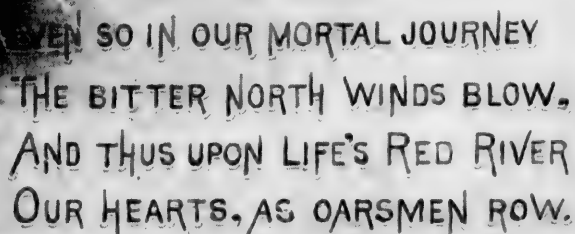 EVEN SO IN OUR MORTAL JOURNEY
THE BITTER NORTH WINDS BLOW,
AND THUS UPON LIFE'S RED RIVER
OUR HEARTS, AS OARSMEN ROW.